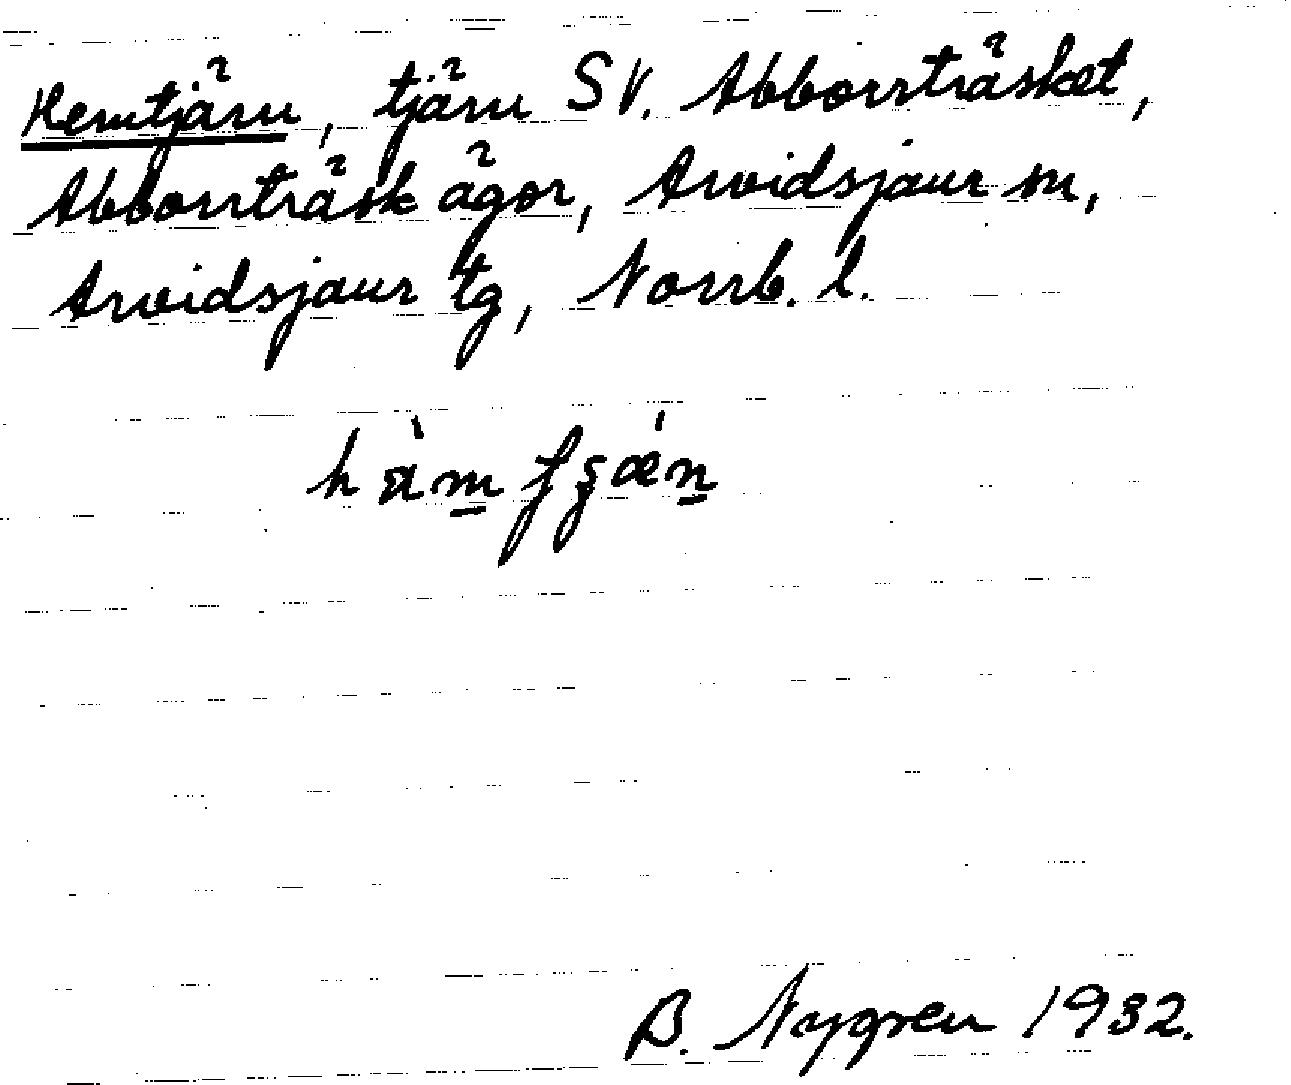 Hemtjärn, tjärn SV. Abborrträsket,
Abborrträsk ägor, Arvidsjaur sn,
Arvidsjaur tg, Norrb. l.
B. Nygren 1932.